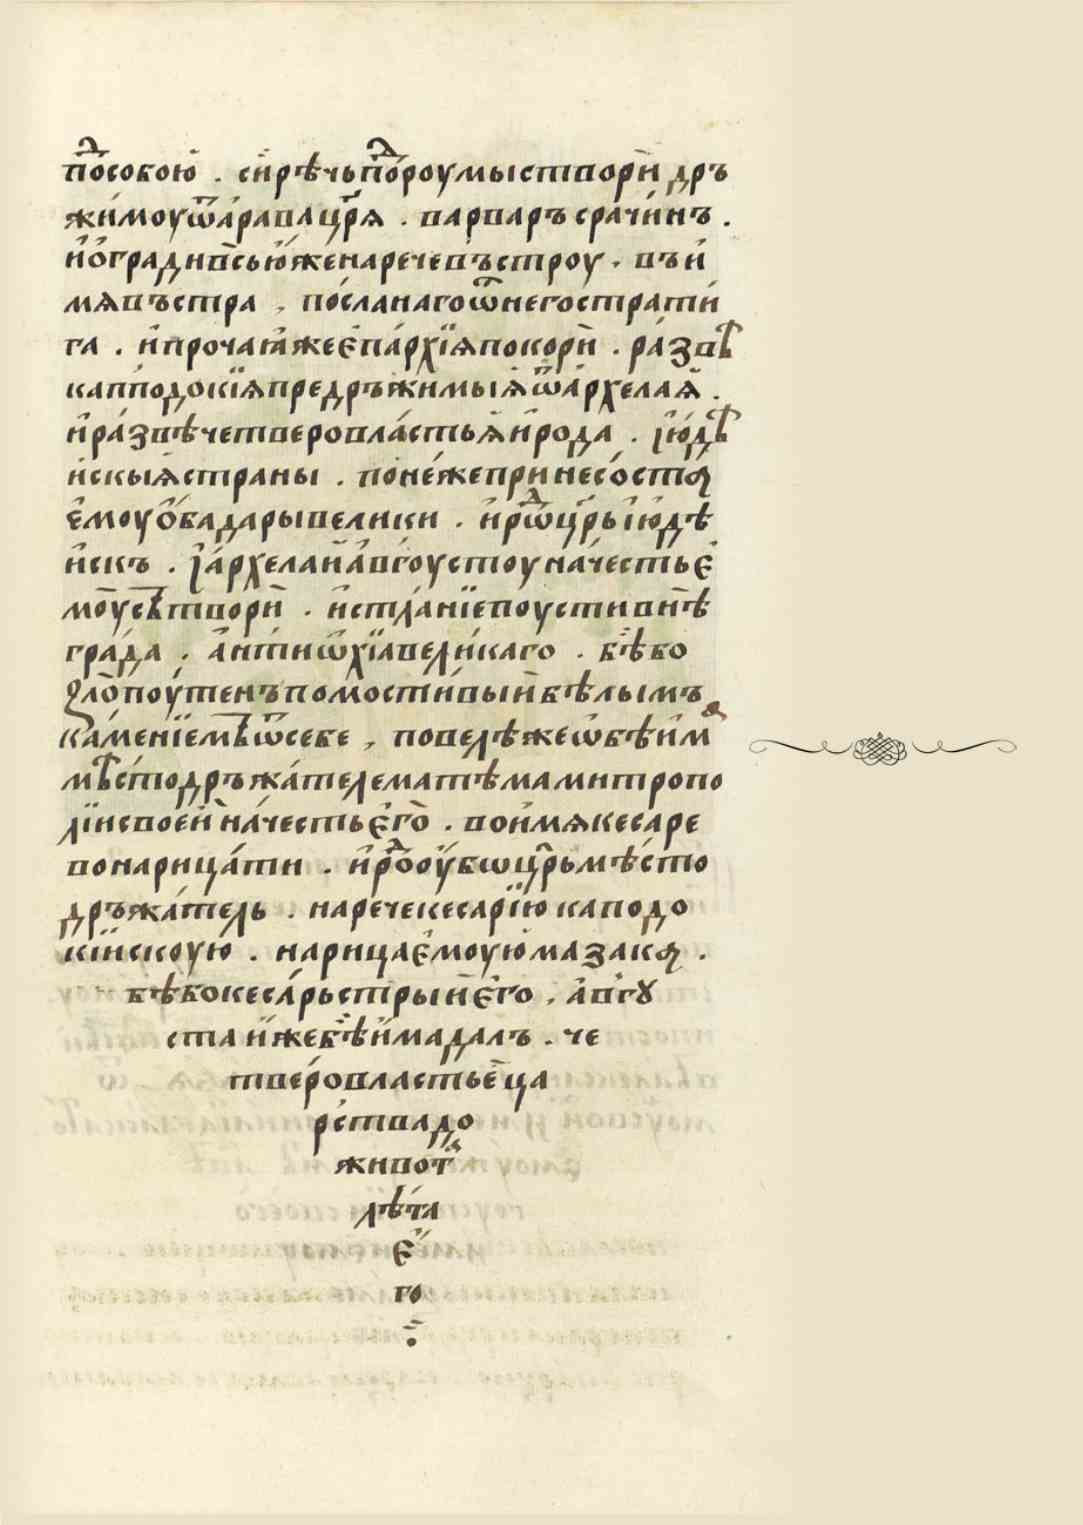 поⷣсобою . сирѣчь поⷣ роумы створи дръ
жимоу ѿ арава цр҃я . варваръ срачинъ .
и огради всю юже нарече въстроу . въ и
мя въстра , посланаго ѿ него страти
га . и прочаꙗ же епархїя покори . развѣ
капподокїя предръжимыя ѿ архелаа .
и развѣ четверовластья ирода . іюдѣ
искыя страны . понеже принесоста
емоу оба дары велики . ироⷣ цр҃ь іюдѣ
искъ . і архелаи авгоустоу на честь е
моу сътвори . и стѧанїе поусти внѣ
града . антиѡхїа великаго . бѣ бо
ѕло поутенъ помостивыи бѣлымъ
каменїемъ ѿ себе , повелѣ же ѡбѣима
мѣстодръжателема тѣма митропо
лїи своеи на честь его . во имя кесаре
во нарицати . ироⷣ оубо цр҃ь мѣсто
дръжатель . нарече кесарїю каподо
кїискоую . нарицаемоую мазака .
бѣ бо кесарь стрыи его . авгꙋ
ста иже бѣ има далъ . че
тверовластье ца
рства до
живота
лѣта
е
го